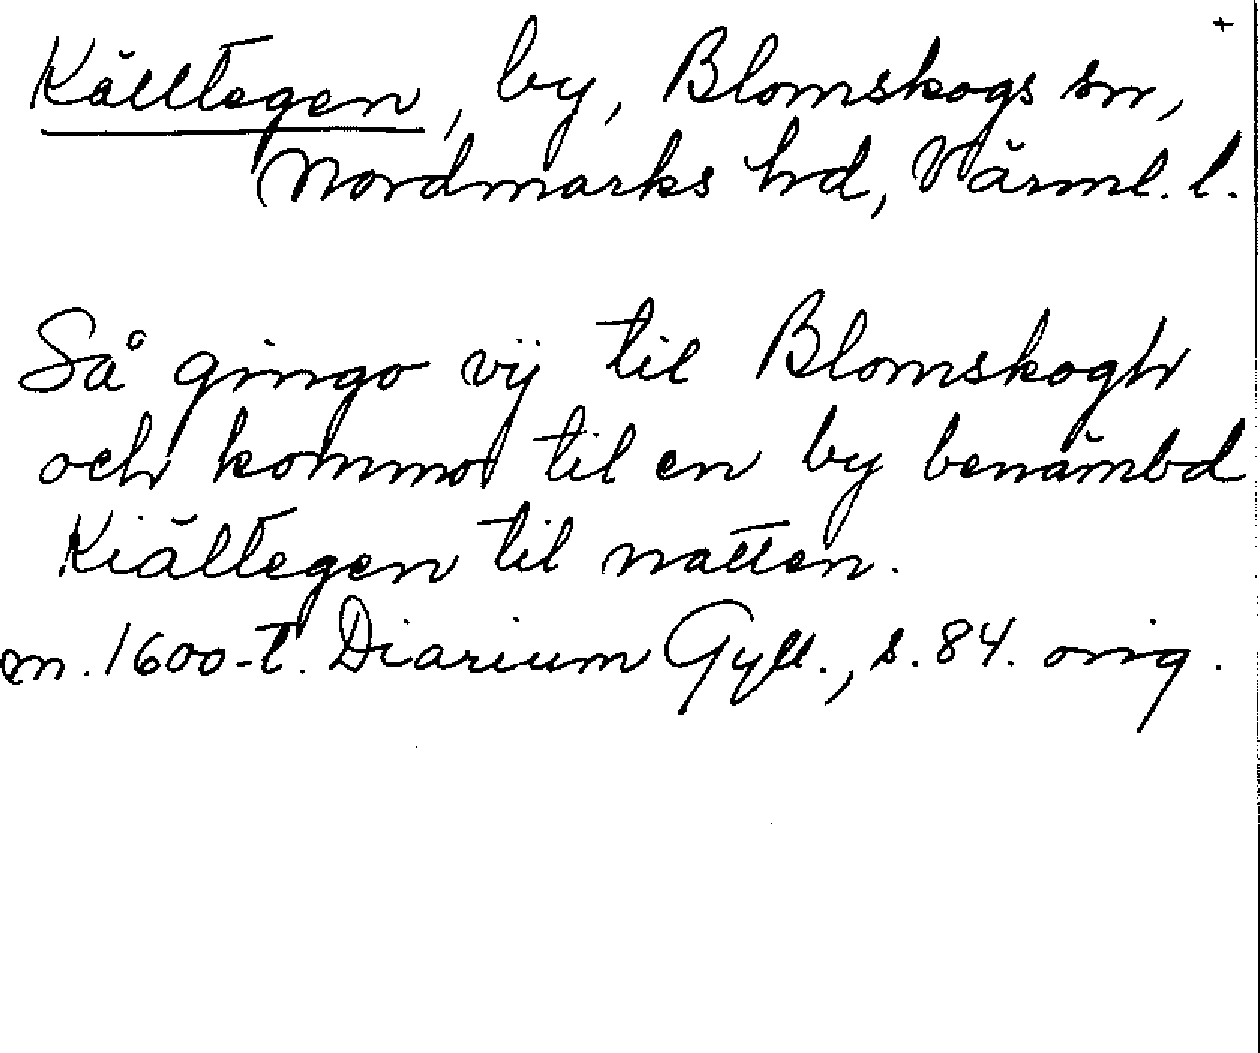 +
Källtegen, by, Blomskogs sn,
Nordmarks hd, Värml. l.
Så gingo vij til Blomskogh
och kommo til en by benämbd
Kiälltegen til natten.
m. 1600-t. Diarium Gyll., s. 84. orig.